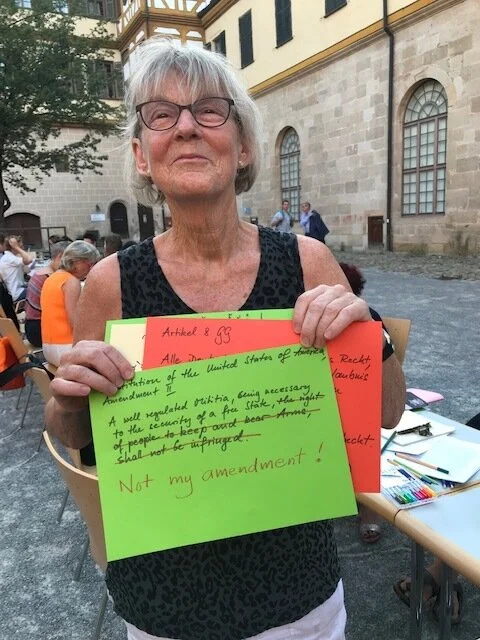 Artikel 8 GG
Alle
Recht,
Erlaubnis
Recht
of the United States of America
Amendment II
A well regulated Militia, being necessary
to the security of a free State, the right
of people to keep and bear Arms,
shall not be infringed.
Not my amendment!